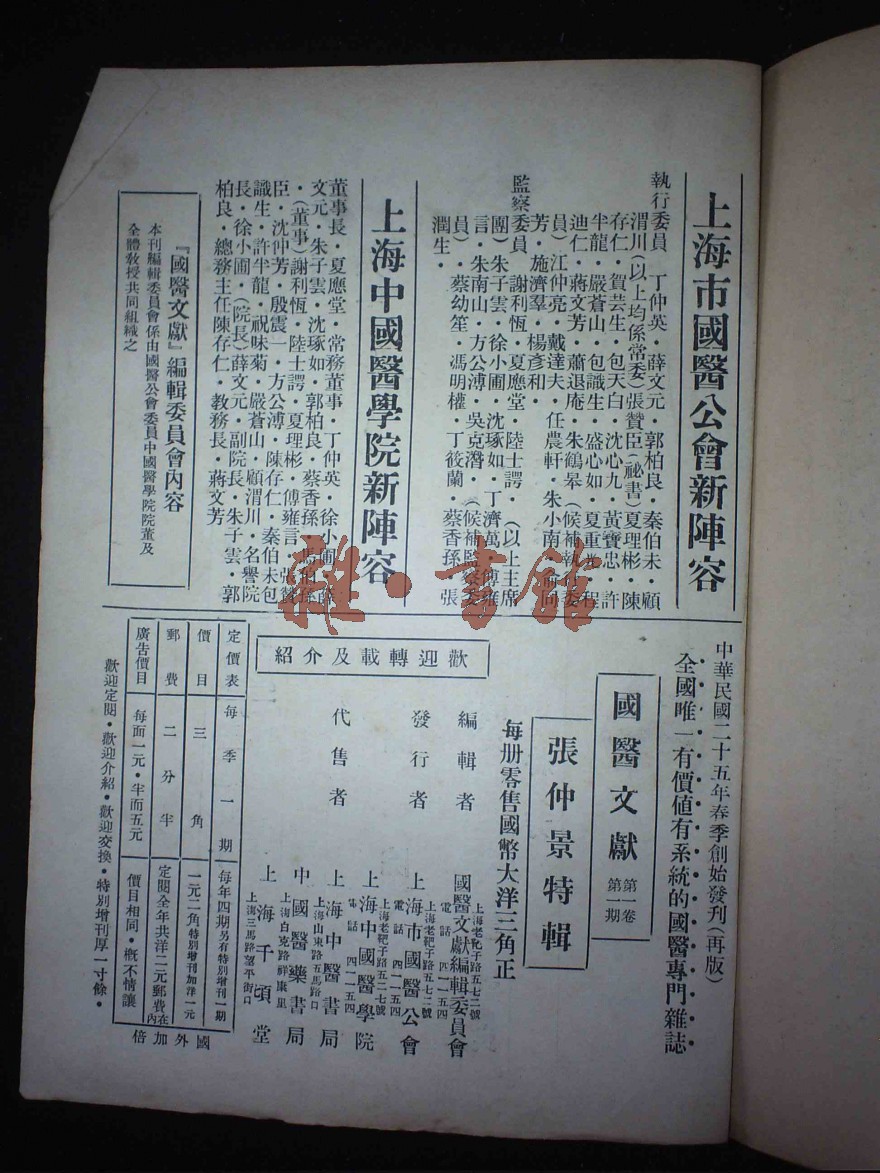 上海市國醫公會新陣容
執行委員　丁仲英・薛文元・郭柏良・秦伯未・顧
渭川(以上均係常委)張贊臣(祕書)夏理彬・陳
存仁・賀芸生・包天白・沈心九・黃寶忠・許
半龍・嚴蒼山・包識生・盛心如・夏重光・程
迪仁・蔣文芳・蕭退庵・朱鶴皋・(候補執行委
員)江仲亮・戴達夫・任農軒・朱小南・
芳・施濟羣・楊彥和・
監察委員　謝利恆・夏應堂・陸士諤・(以上主席
團)朱子雲・徐小圃・沈琢如・丁濟萬・傅雍
言・朱南山・方公溥・吳克潛・(候補監察委
員)・蔡幼笙・馮明權・丁筱蘭・蔡香孫・張
潤生・
上海中國醫學院新陣容
董事長・夏應堂・常務董事・丁仲英・徐小圃・薛
文元・朱子雲・沈琢如・郭柏良・蔡香孫・
・(董事)謝利恆・陸士諤・夏理彬・傅雍言・張贊
臣・沈仲芳・殷震一・方公溥・陳存仁・秦伯未包
識生・許半龍・祝味菊・嚴蒼山・顧渭川・名譽院
長・徐小圃・(院長)薛文元・副院長・朱子雲・郭
柏良・總務主任陳存仁・教務長・蔣文芳
『國醫文獻』編輯委員會內容
本刊編輯委員會係由國醫公會委員中國醫學院院董及
全體教授共同組織之
中華民國二十五年春季創始發刊(再版)
全國唯一有價値有系統的國醫專門雜誌
國醫文獻　第一卷 第一期
張仲景特輯
每册零售國幣大洋三角正
歡迎轉載及介紹
編輯者　國醫文獻編輯委員會
上海老靶子路五七二號
電話　四一一五四
發行者　上海市國醫公會
上海老靶子路五七二號
電話　四一一五四
上海中國醫學院
上海老靶子路五二七號
電話　四一一五四
代售者　上海中醫書局
上海山東路五馬路口
中國醫藥書局
上海白克路祥康里
上海千頃堂
上海三馬路望平街口
定價表　每季一期　每年四期另有特別增刊一期
價目　三角　一元二角特別增刊加洋一元
郵費　二分半　定閱全年共洋二元郵費在內
廣告價目　每面一元・半面五元　價目相同・概不情讓
國外加倍
歡迎定閱・歡迎介紹・歡迎交換・特別增刊厚一寸餘・
雜・書館